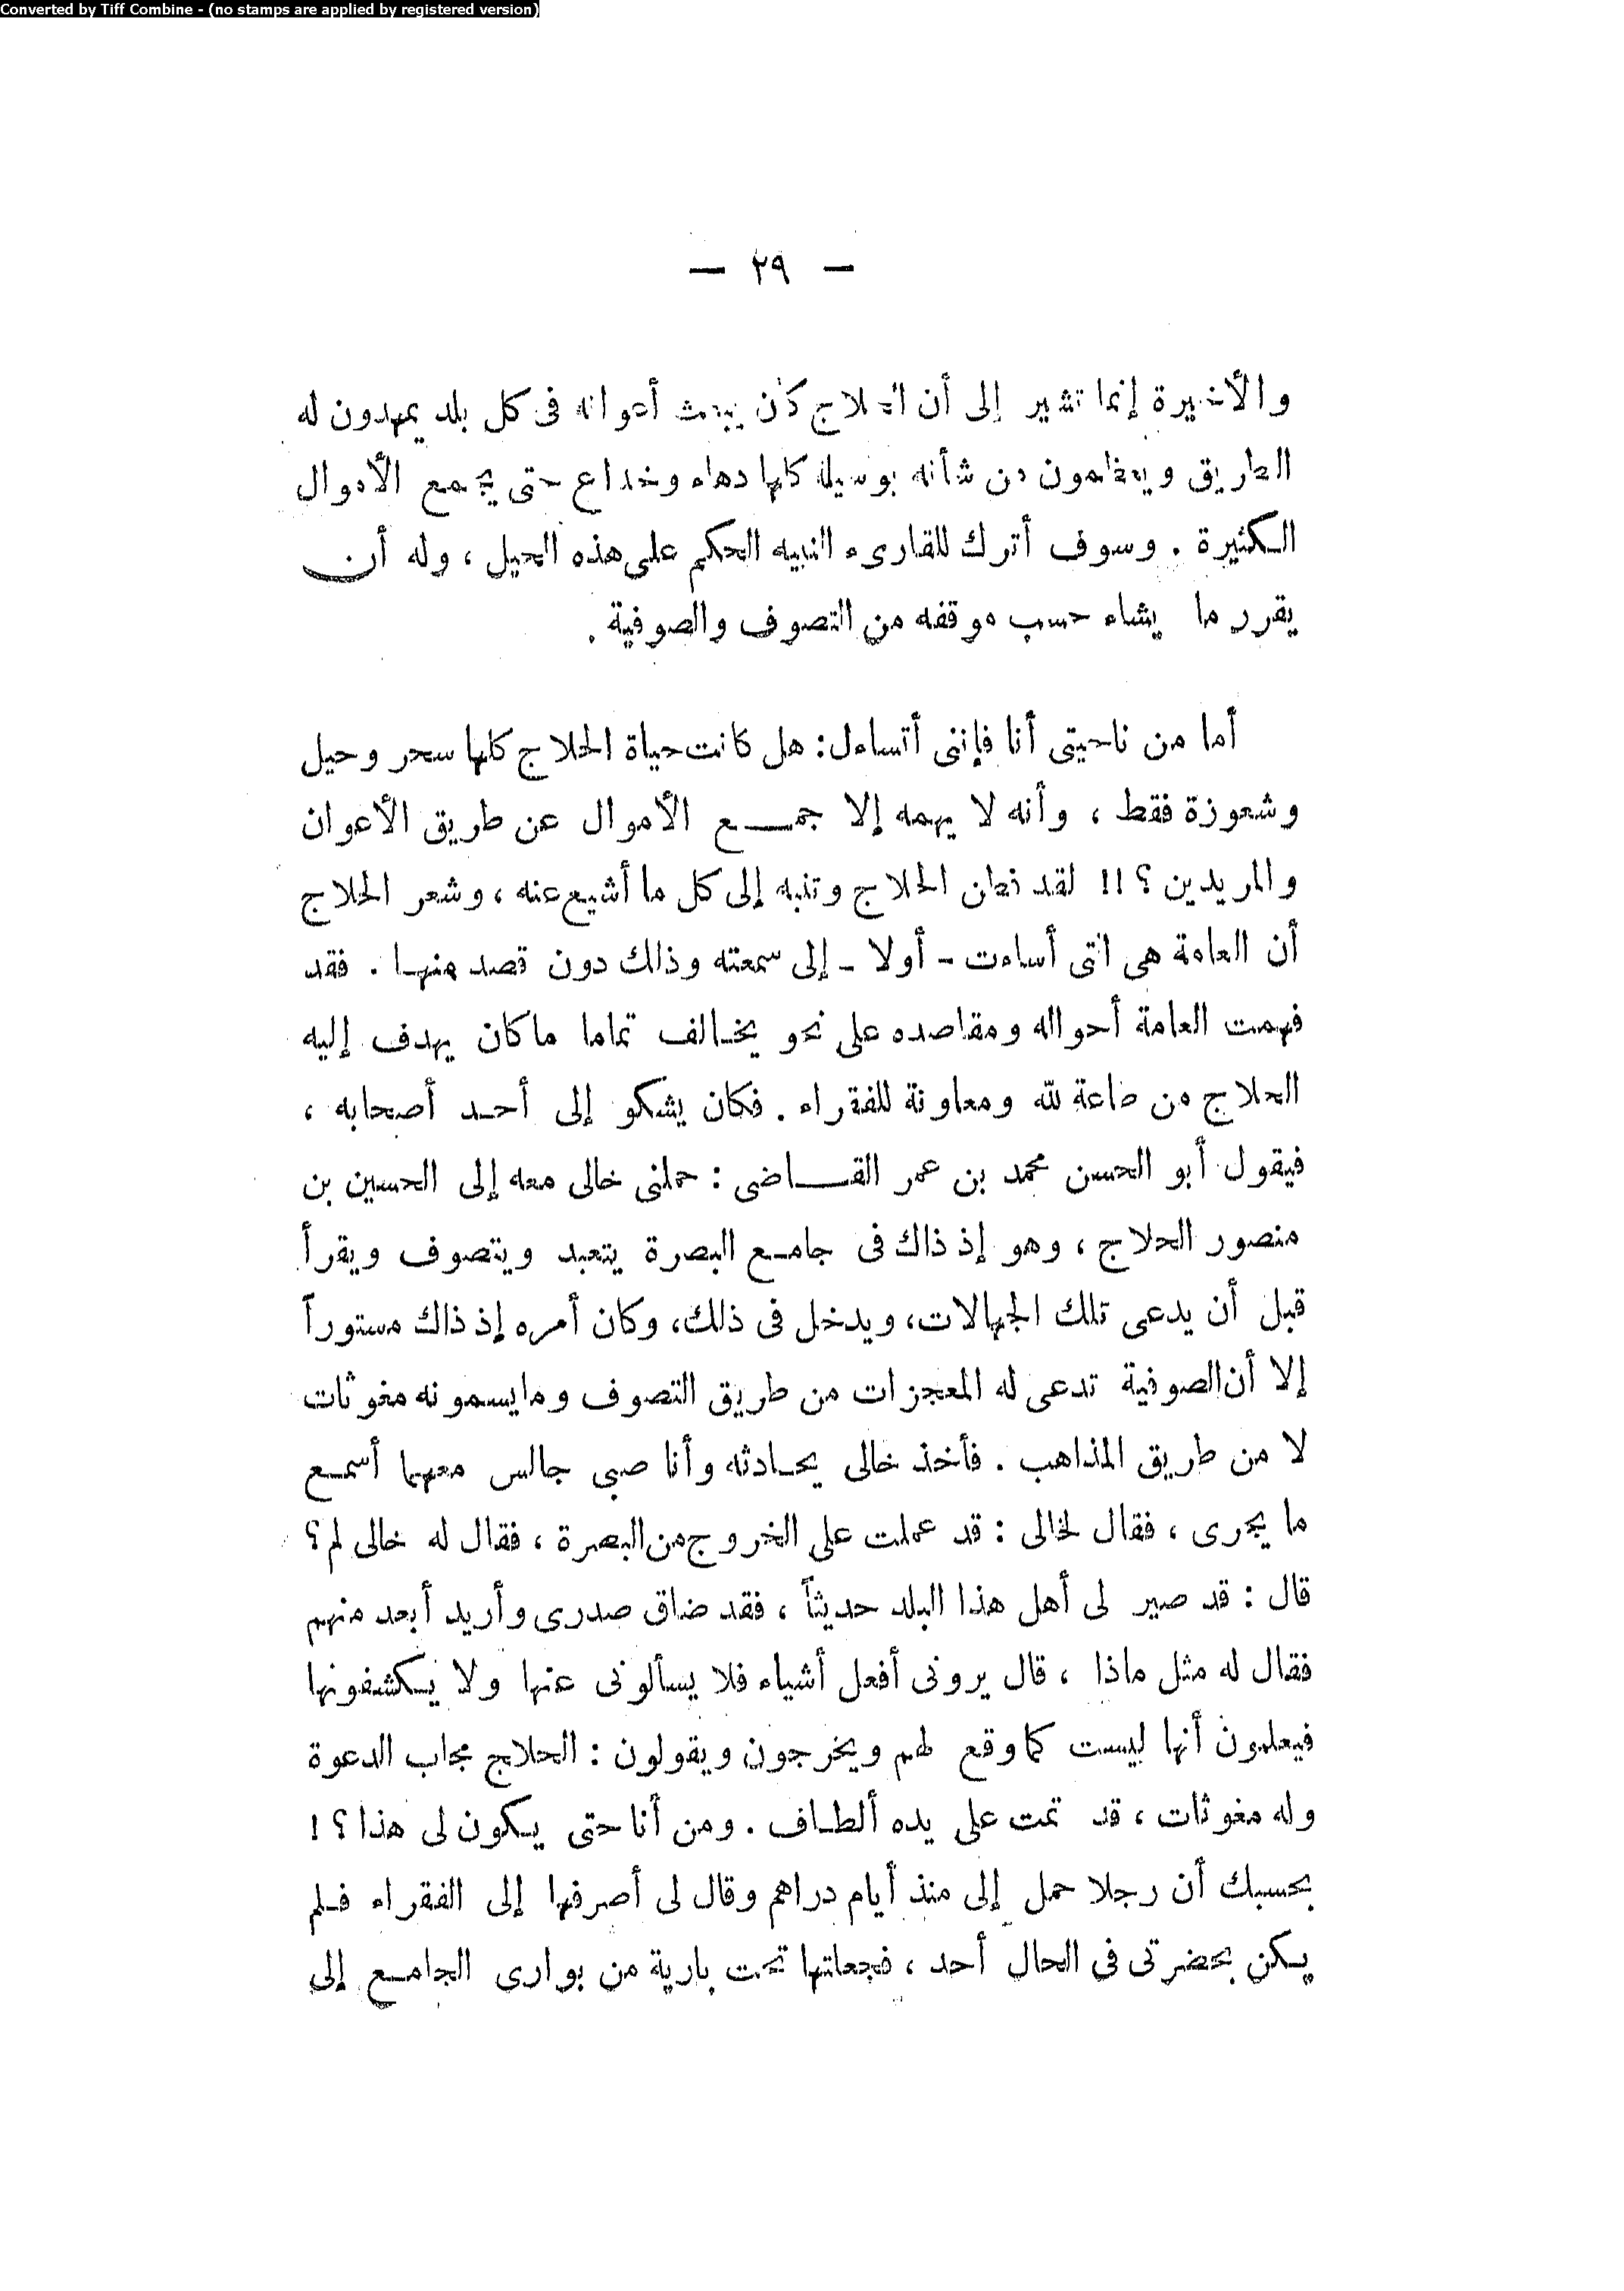 Converted by Tiff Combine - (no stamps are applied by registered version)
— ٢٩ —
والأخيرة إنما تشير إلى أن الحلاج كان يبعث أعوانه فى كل بلد يمهدون له
الطريق ويعظمون من شأنه بوسيلة كلها دهاء وخداع حتى يجمع الأموال
الكثيرة . وسوف أترك للقارىء النبيه الحكم على هذه الحيل ، وله أن
يقرر ما يشاء حسب موقفه من التصوف والصوفية .
أما من ناحيتى أنا فإننى أتساءل : هل كانت حياة الحلاج كلها سحر وحيل
وشعوذة فقط ، وأنه لا يهمه إلا جمـــع الأموال عن طريق الأعوان
والمريدين ؟ !! لقد فطن الحلاج وتنبه إلى كل ما أشيع عنه ، وشعر الحلاج
أن العامة هى التى أساءت - أولا - إلى سمعته وذلك دون قصد منهـا . فقد
فهمت العامة أحواله ومقاصده على نحو يخـالف تماما ما كان يهدف إليه
الحلاج من طاعة لله ومعاونة للفقراء . فكان يشكو إلى أحـد أصحابه ،
فيقول أبو الحسن محمد بن عمر القــــاضى : حملنى خالى معه إلى الحسين بن
منصور الحلاج ، وهو إذ ذاك فى جامـع البصرة يتعبد ويتصوف ويقرأ
قبل أن يدعى تلك الجهالات ، ويدخل فى ذلك ، وكان أمره إذ ذاك مستوراً
إلا أن الصوفية تدعى له المعجزات من طريق التصوف وما يسمونه مغوثات
لا من طريق المذاهب . فأخذ خالى يحـادثه وأنا صبى جالس معهما أسمـع
ما يجرى ، فقال لخالى : قد عملت على الخروج من البصرة ، فقال له خالى لم ؟
قال : قد صير لى أهل هذا البلد حديثاً ، فقد ضاق صدرى وأريد أبعد منهم
فقال له مثل ماذا ، قال يرونى أفعل أشياء فلا يسألونى عنها ولا يـكشفونها
فيعلمون أنها ليست كما وقع لهم ويخرجون ويقولون : الحلاج مجاب الدعوة
وله مغوثات ، قد تمت على يده ألطـاف . ومن أنا حتى يـكون لى هذا ؟ !
بحسبك أن رجلا حمل إلى منذ أيام دراهم وقال لى أصرفها إلى الفقراء فـلم
يـكن بحضرتى فى الحال أحد ، فجعلتها تحت بارية من بوارى الجامـع إلى